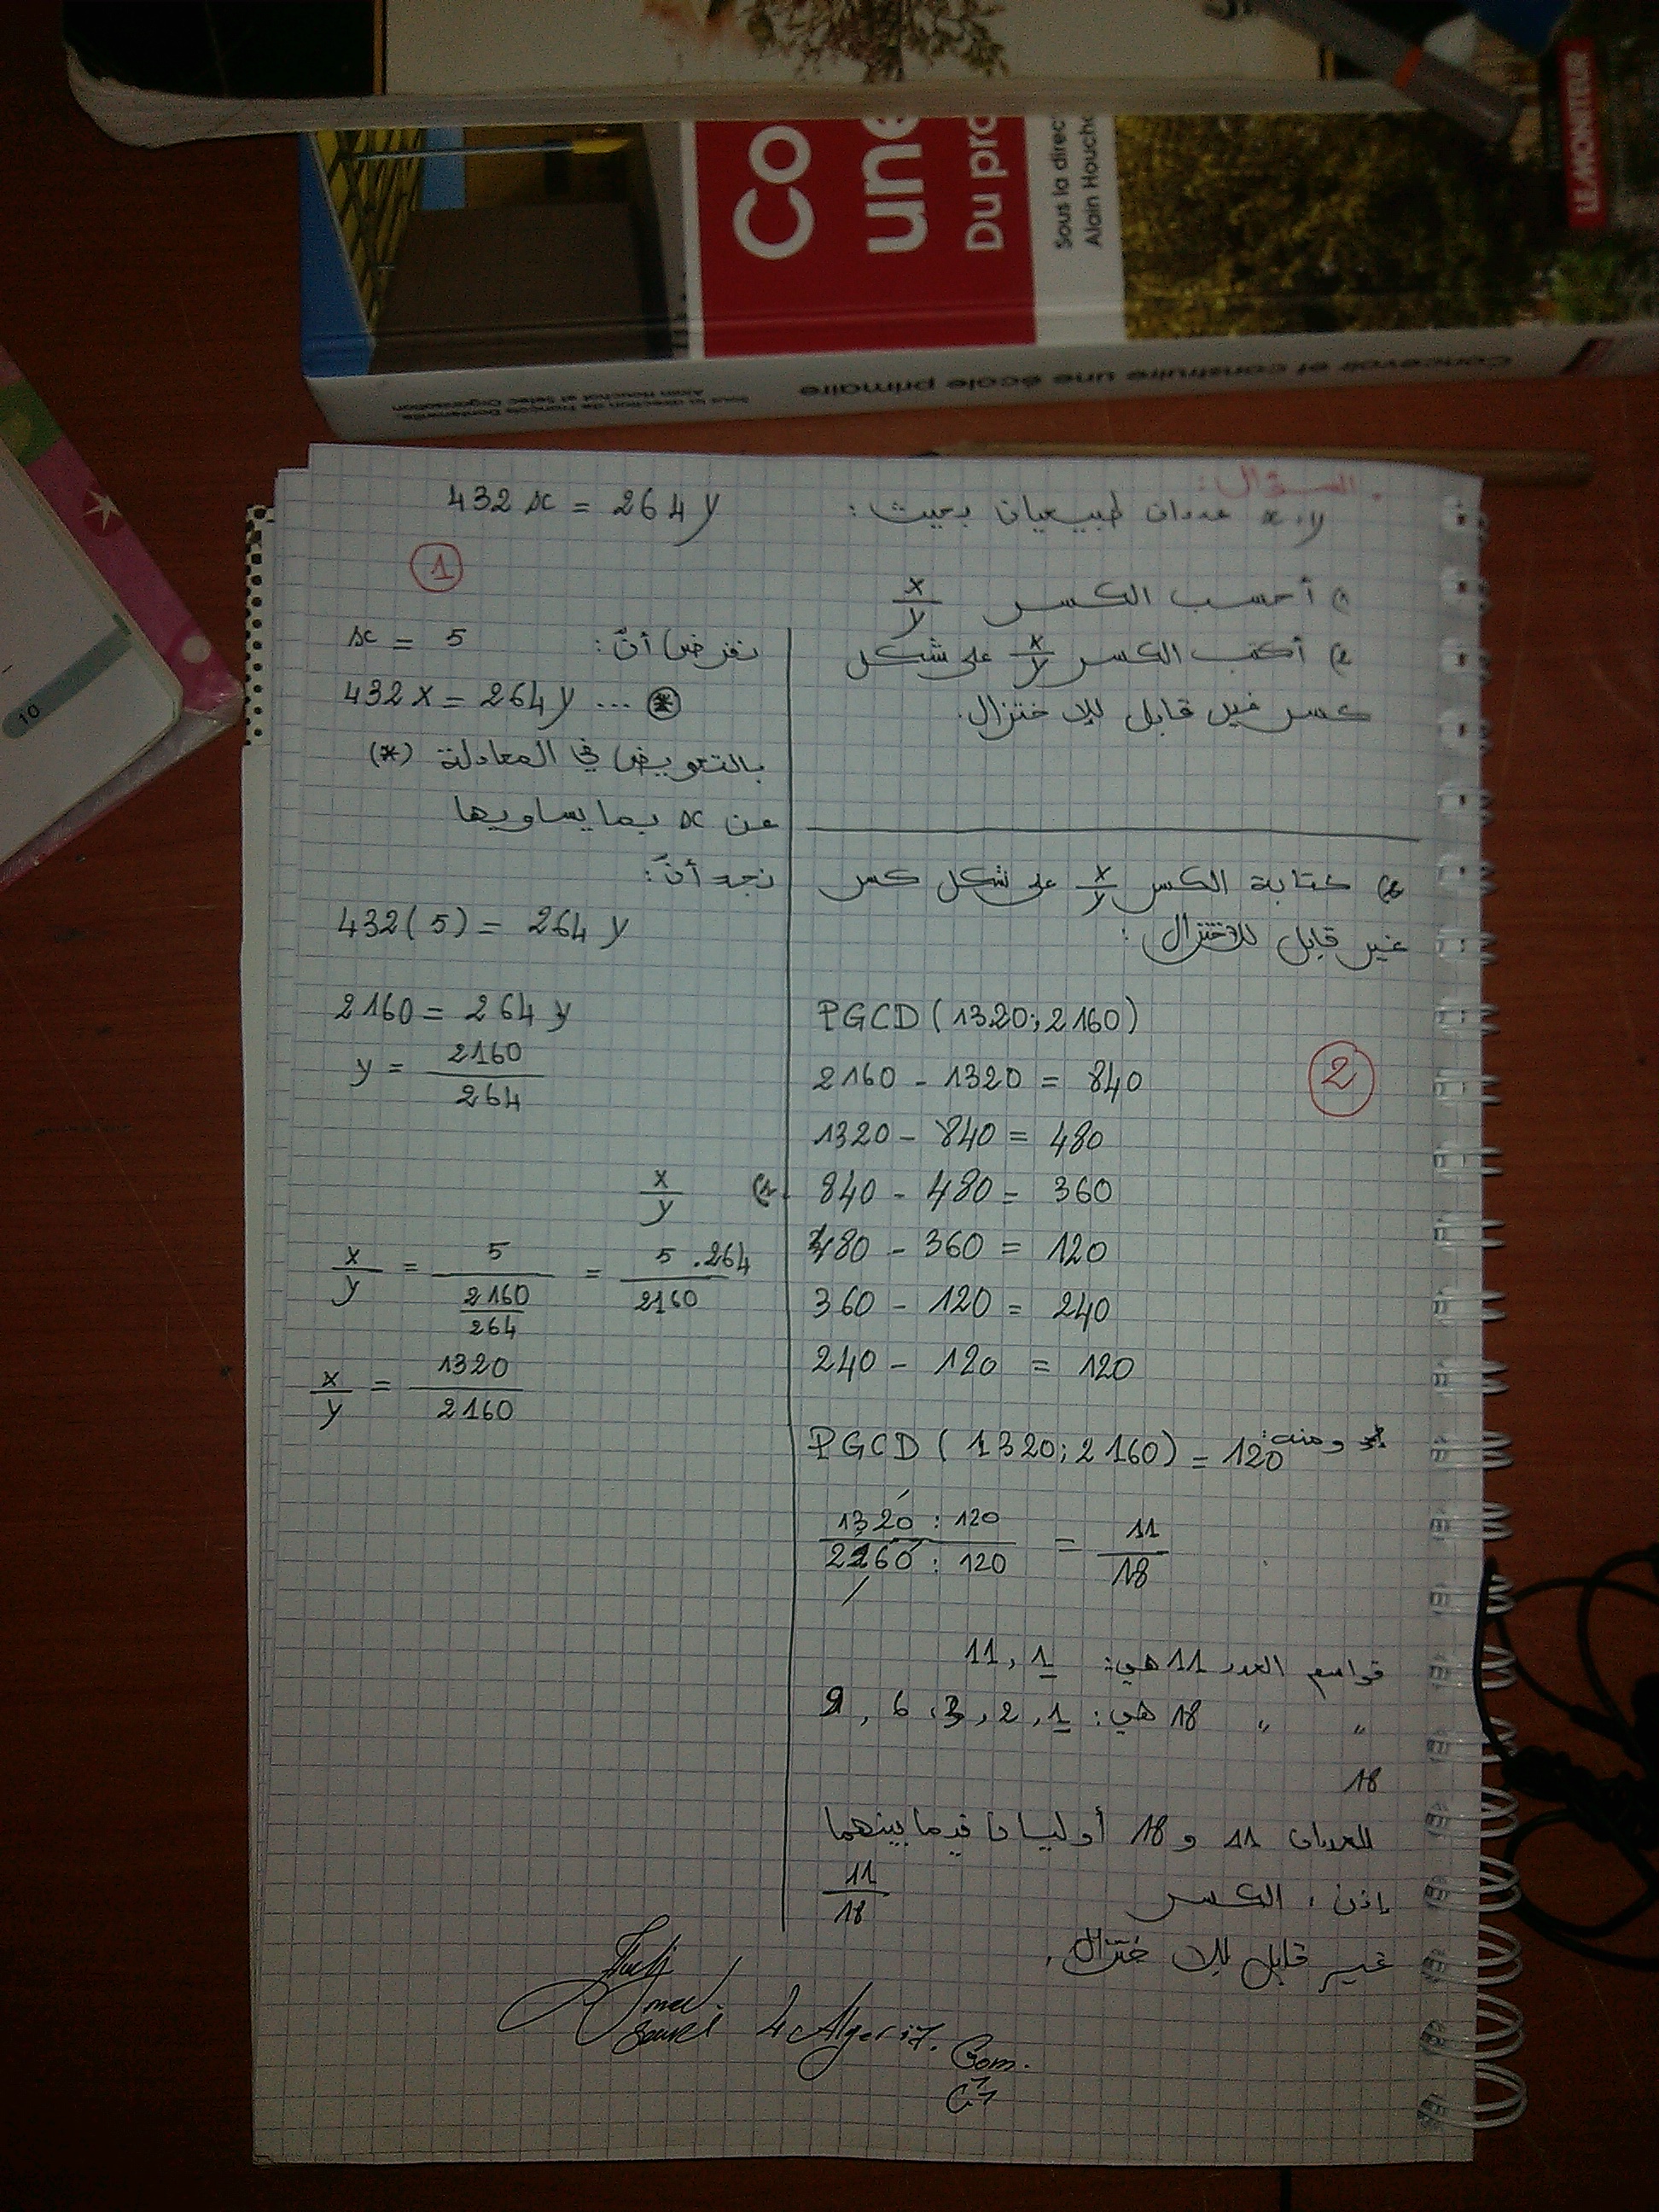 Co
une
Du pro
Sous la direc
Alain Houcha
LE MONITEUR
Concevoir et construire une école primaire
Sous la direction de François Dontenwille,
Alain Houchot et Setec Organisation
10
السؤال:
x، y عددان طبيعيان بحيث: 432x = 264y
1) أحسب الكسر x/y
2) أكتب الكسر x/y على شكل
كسر غير قابل للاختزال.
1
نفرض أنّ: x = 5
432x = 264y ... (*)
بالتعويض في المعادلة (*)
عن x بما يساويها
نجد أنّ:
432(5) = 264y
2160 = 264y
y = 2160/264
1) x/y
x/y = 5/(2160/264) = 5.264/2160
x/y = 1320/2160
2) كتابة الكسر x/y على شكل كسر
غير قابل للاختزال:
PGCD(1320;2160)
2
2160 - 1320 = 840
1320 - 840 = 480
840 - 480 = 360
480 - 360 = 120
360 - 120 = 240
240 - 120 = 120
* ومنه: PGCD(1320;2160) = 120
1320 : 120 / 2160 : 120 = 11/18
قواسم العدد 11 هي: 1، 11
" " 18 هي: 1، 2، 3، 6، 9
18
العددان 11 و 18 أوليان فيما بينهما
إذن، الكسر 11/18
غير قابل للاختزال.
4Algeria.
Com.